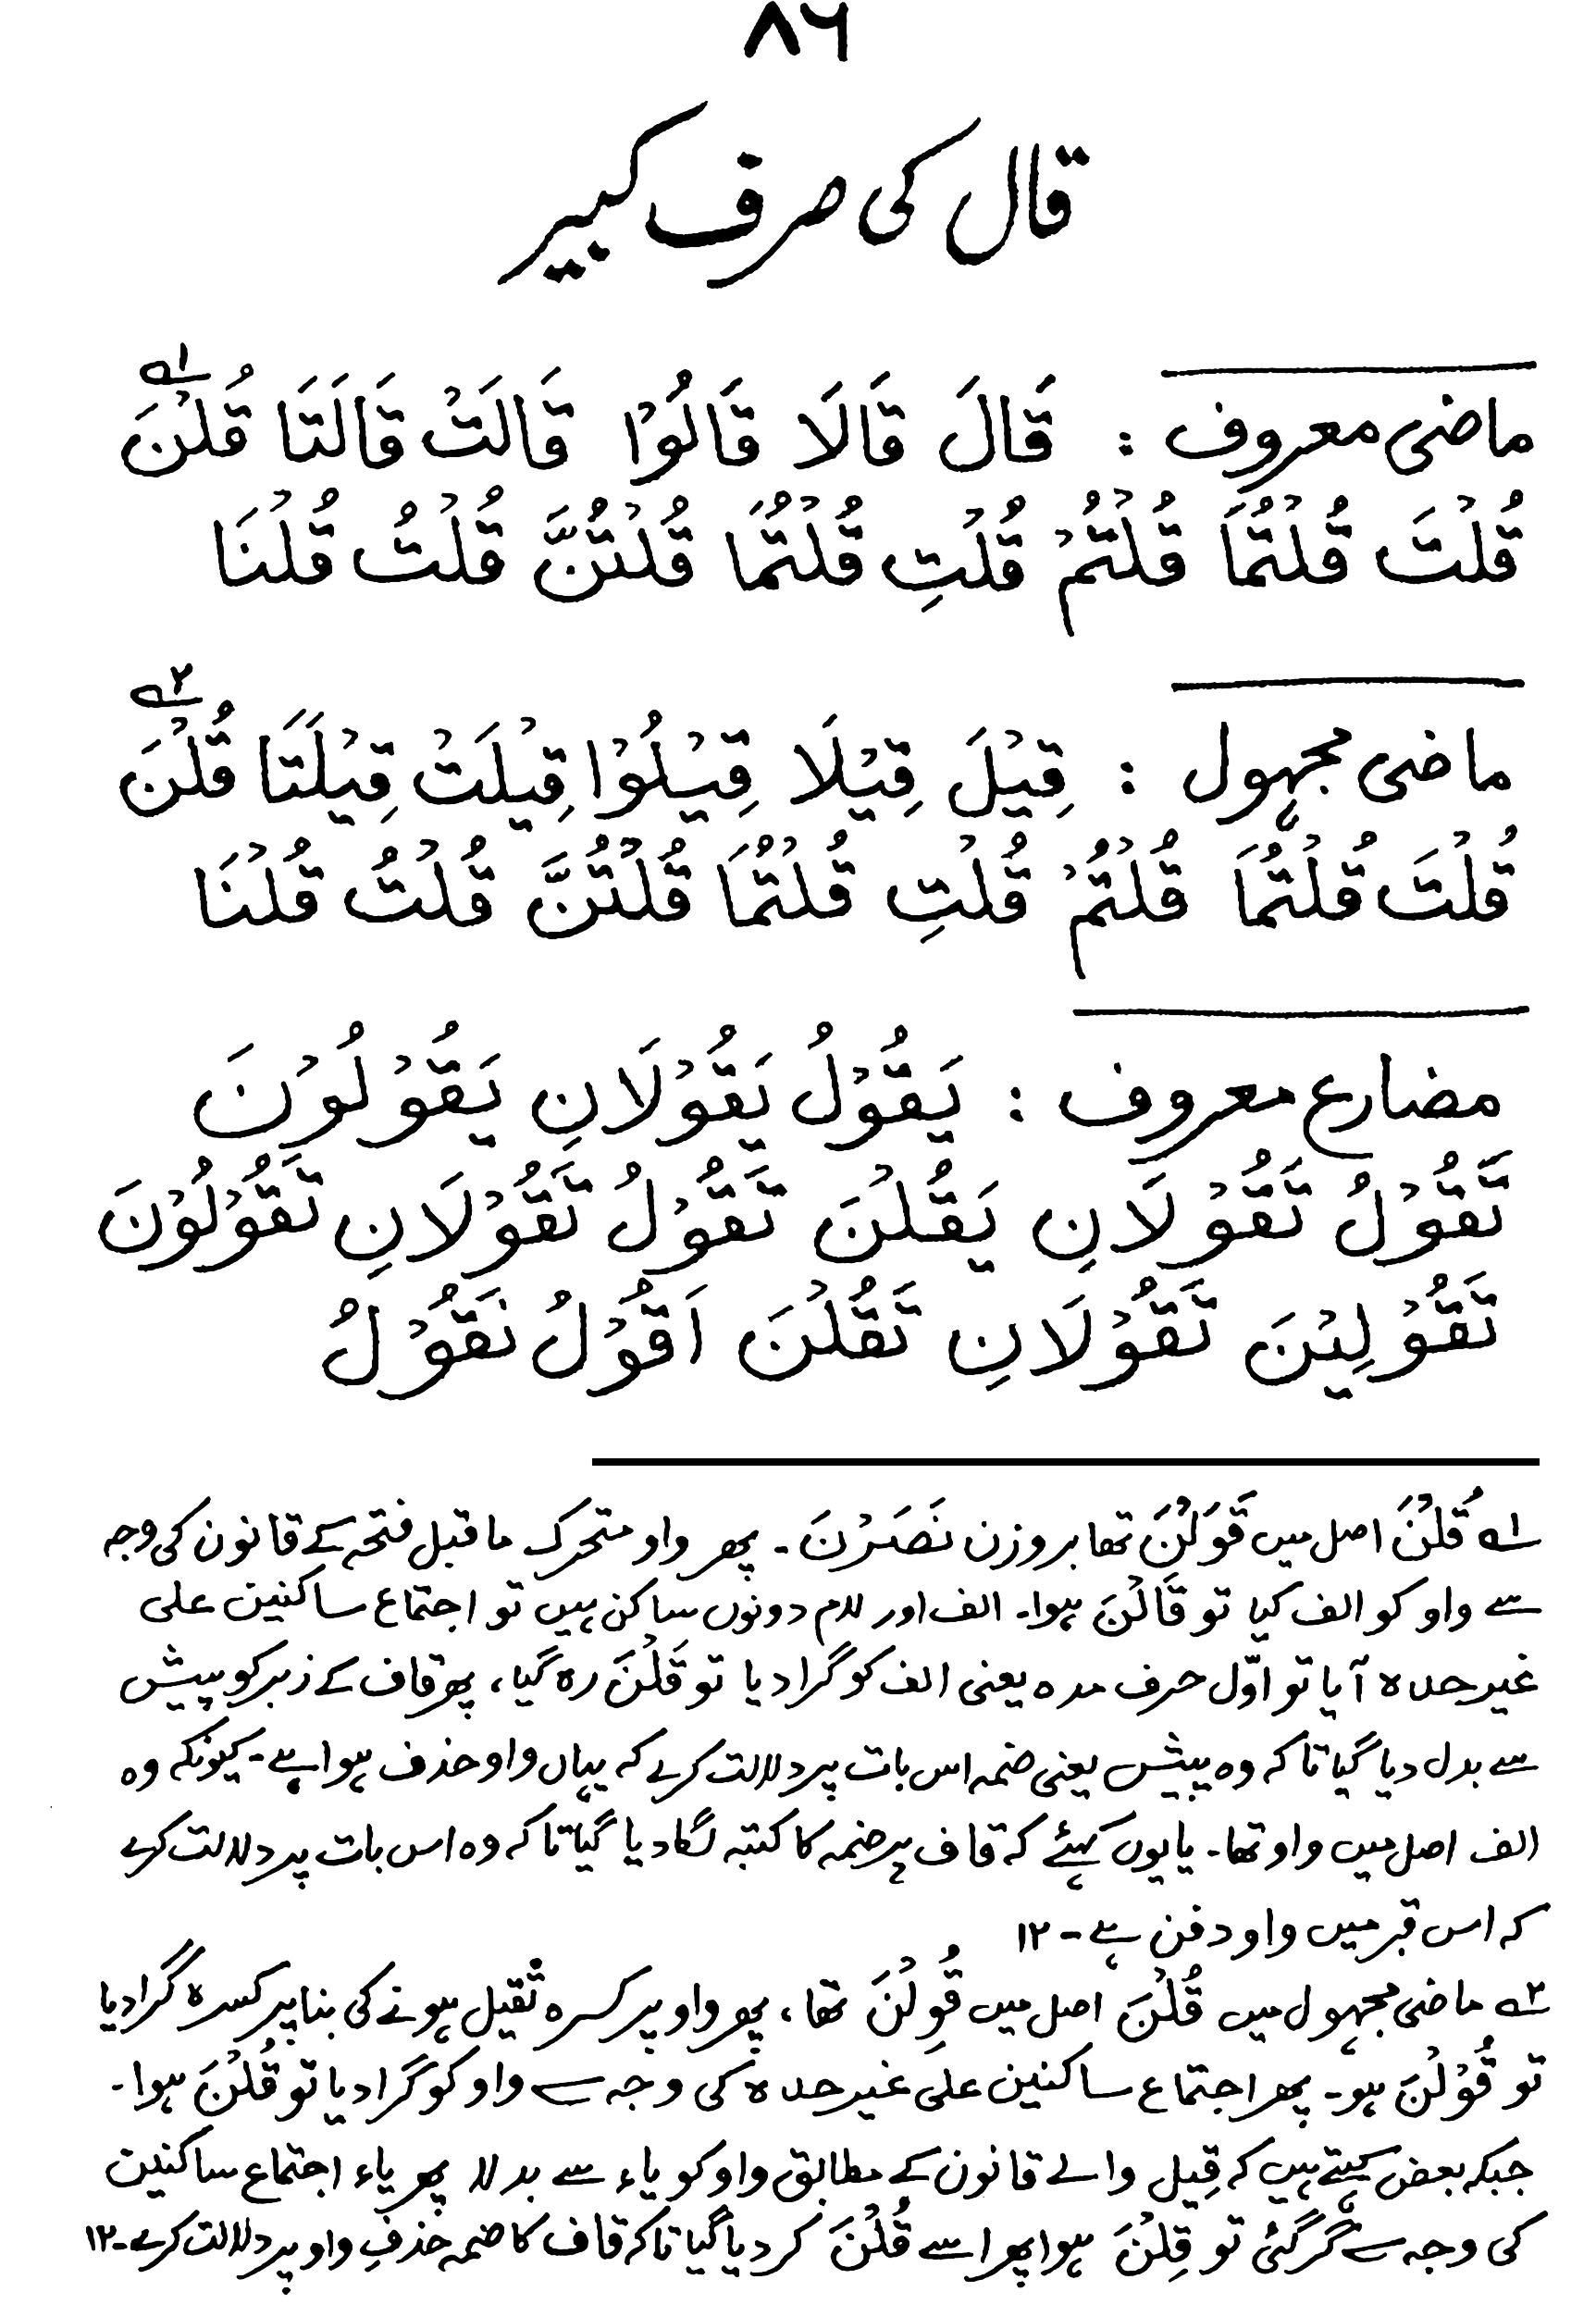 ۸۶
قال کی صرف کبیر
ماضی معروف : قَالَ قَالَا قَالُوْا قَالَتْ قَالَتَا قُلْنَ ؎۱
قُلْتَ قُلْتُمَا قُلْتُمْ قُلْتِ قُلْتُمَا قُلْتُنَّ قُلْتُ قُلْنَا
ماضی مجہول : قِیْلَ قِیْلَا قِیْلُوْا قِیْلَتْ قِیْلَتَا قُلْنَ ؎۲
قُلْتَ قُلْتُمَا قُلْتُمْ قُلْتِ قُلْتُمَا قُلْتُنَّ قُلْتُ قُلْنَا
مضارع معروف : یَقُوْلُ یَقُوْلَانِ یَقُوْلُوْنَ
تَقُوْلُ تَقُوْلَانِ یَقُلْنَ تَقُوْلُ تَقُوْلَانِ تَقُوْلُوْنَ
تَقُوْلِیْنَ تَقُوْلَانِ تَقُلْنَ اَقُوْلُ نَقُوْلُ
؎۱ قُلْنَ اصل میں قَوَلْنَ تھا بروزن نَصَرْنَ۔ پھر واو متحرک ماقبل فتحہ کے قانون کی وجہ
سے واو کو الف کیا تو قَالْنَ ہوا۔ الف اور لام دونوں ساکن ہیں تو اجتماع ساکنین علی
غیر حدہ آیا تو اوّل حرف مدہ یعنی الف کو گرا دیا تو قَلْنَ رہ گیا، پھر قاف کے زبر کو پیش
سے بدل دیا گیا تا کہ وہ پیش یعنی ضمہ اس بات پر دلالت کرے کہ یہاں واو حذف ہوا ہے۔ کیونکہ وہ
الف اصل میں واو تھا۔ یا یوں کہئے کہ قاف پر ضمہ کا کتبہ لگا دیا گیا تا کہ وہ اس بات پر دلالت کرے
کہ اس قبر میں واو دفن ہے۔ ۱۲
؎۲ ماضی مجہول میں قُلْنَ اصل میں قُوِلْنَ تھا، پھر واو پر کسرہ ثقیل ہونے کی بنا پر کسرہ گرا دیا
تو قُوْلْنَ ہو۔ پھر اجتماع ساکنین علی غیر حدہ کی وجہ سے واو کو گرا دیا تو قُلْنَ ہوا۔
جبکہ بعض کہتے ہیں کہ قِیل والے قانون کے مطابق واو کو یاء سے بدلا پھر یاء اجتماع ساکنین
کی وجہ سے گر گئی تو قِلْنَ ہوا پھر اسے قُلْنَ کر دیا گیا تا کہ قاف کا ضمہ حذفِ واو پر دلالت کرے۔ ۱۲